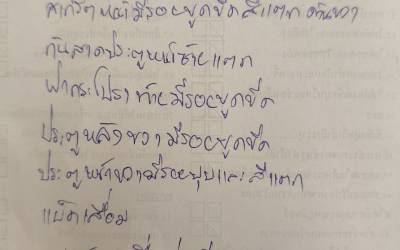 สเกิร์ตหน้ามีรอยขูดขีดสีแตกด้านขวา
กันสาดประตูหน้าซ้ายแตก
ฝากระโปรงท้ายมีรอยขูดขีด
ประตูหลังขวามีรอยขูดขีด
ประตูหน้าขวามีรอยบุบและสีแตก
แบ็ตเสื่อม